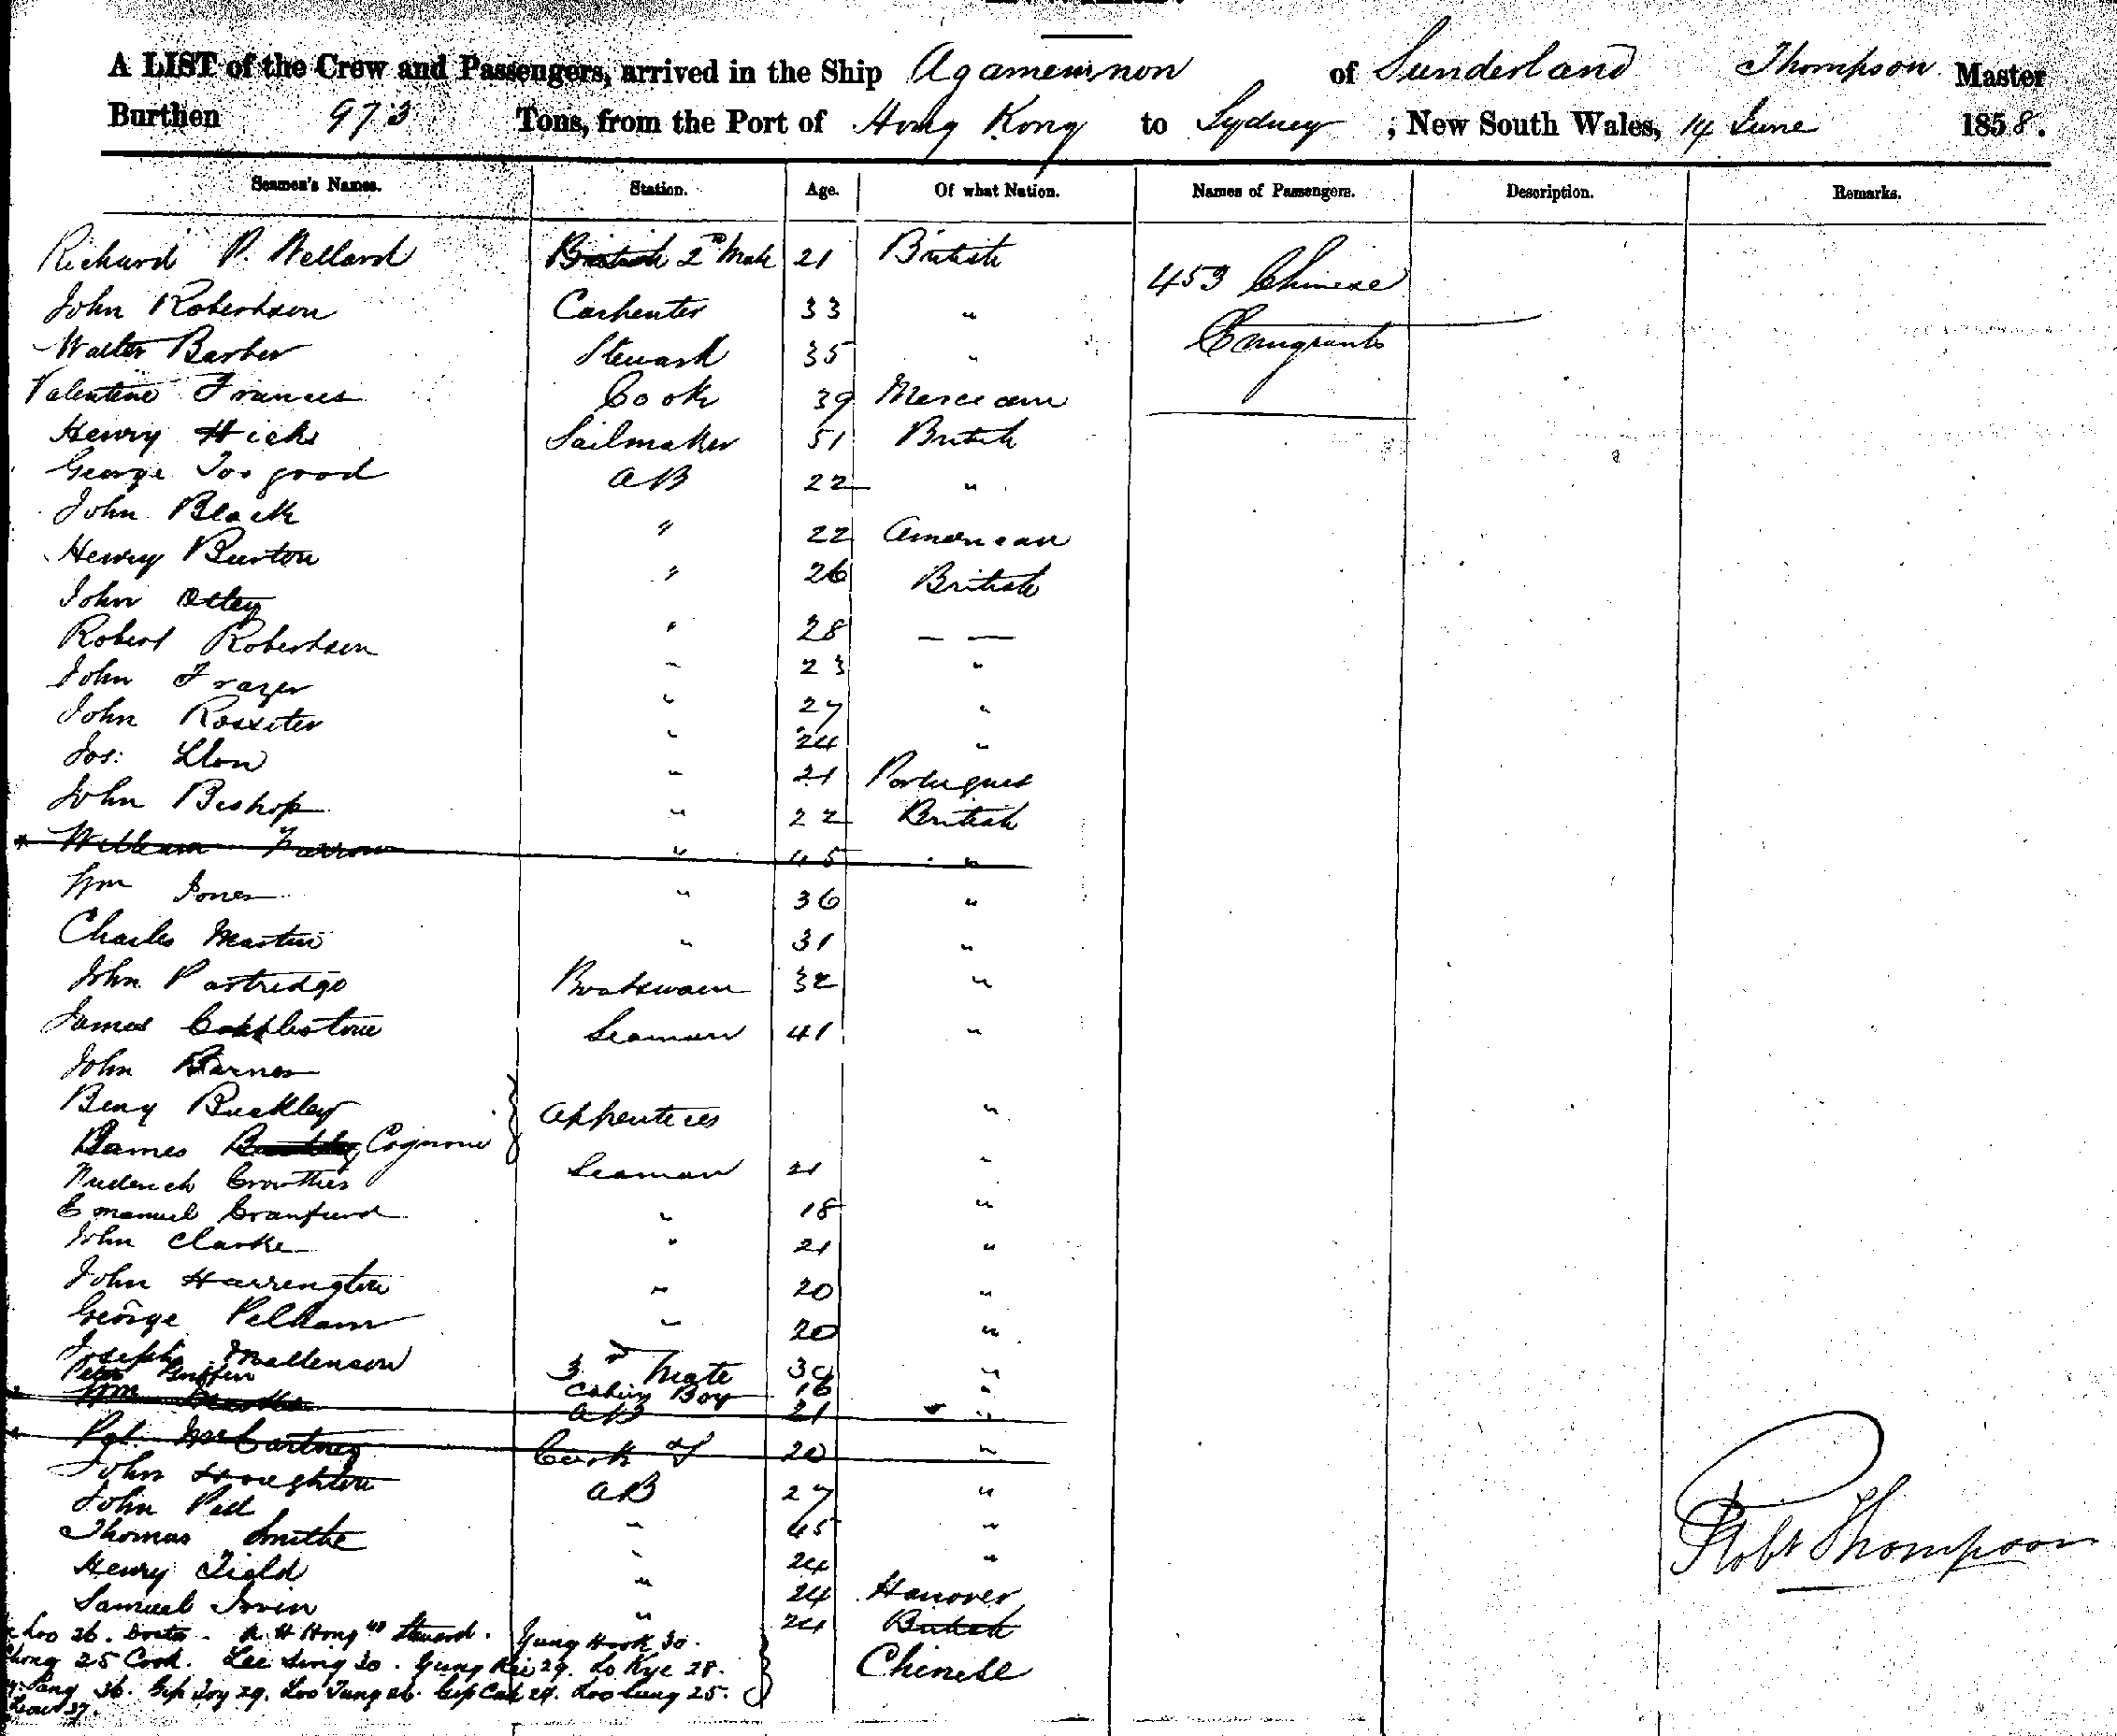 A LIST of the Crew and Passengers, arrived in the Ship Agamemnon of Sunderland Thompson Master
Burthen 973 Tons, from the Port of Hong Kong to Sydney, New South Wales, 14 June 1858.
Seamen's Names. Station. Age. Of what Nation. Names of Passengers. Description. Remarks.
Richard P. Wellard British 2nd Mate 21 British
453 Chinese
Emigrants
John Robertson Carpenter 33 "
Walter Barber Steward 35 "
Valentine Frances Cook 39
Henry Hicks Sailmaker 51 British
George Toogood AB 22 "
John Black " 22 American
Henry Burton " 26 British
John Otley " 28 — —
Robert Robertson " 23 "
John Frazer " 27 "
John Rossiter " 24 "
Jos: Llon " 21 Portugues
John Bishop " 22 British
* William Farrow " 45 "
Wm Jones " 36 "
Charles Martin " 31 "
John Partridge Boatswain 32 "
James Copplestone Seaman 41 "
John Barnes
Benj Buckley Apprentices "
James
Frederick Crowther Seaman 21 "
Emanuel Cranfurd " 18 "
John Clarke " 21 "
John Harrington " 20 "
George Pelham " 20 "
Joseph Mallenson 3rd Mate 30 "
Peter Griffin Cabin Boy 16 "
* Wm AB 21 "
* Pat. McCartney Cook 20 "
John Houghton AB 27 "
John Pill " 45 "
Thomas Smithe " 24 "
Henry Field " 24 Hanover
Samuel Irvin " 24 British
Loo 26. Doctor. A H Hong 40 Steward. Yung Hook 30.
Chong 25 Cook. Lee Sing 30. Yung Kee 29. Lo Kye 28. Chinese
Sang 36. Gip Joy 29. Loo Tung 26. Gip Cak 29. Loo Cung 25.
37.
Robt Thompson